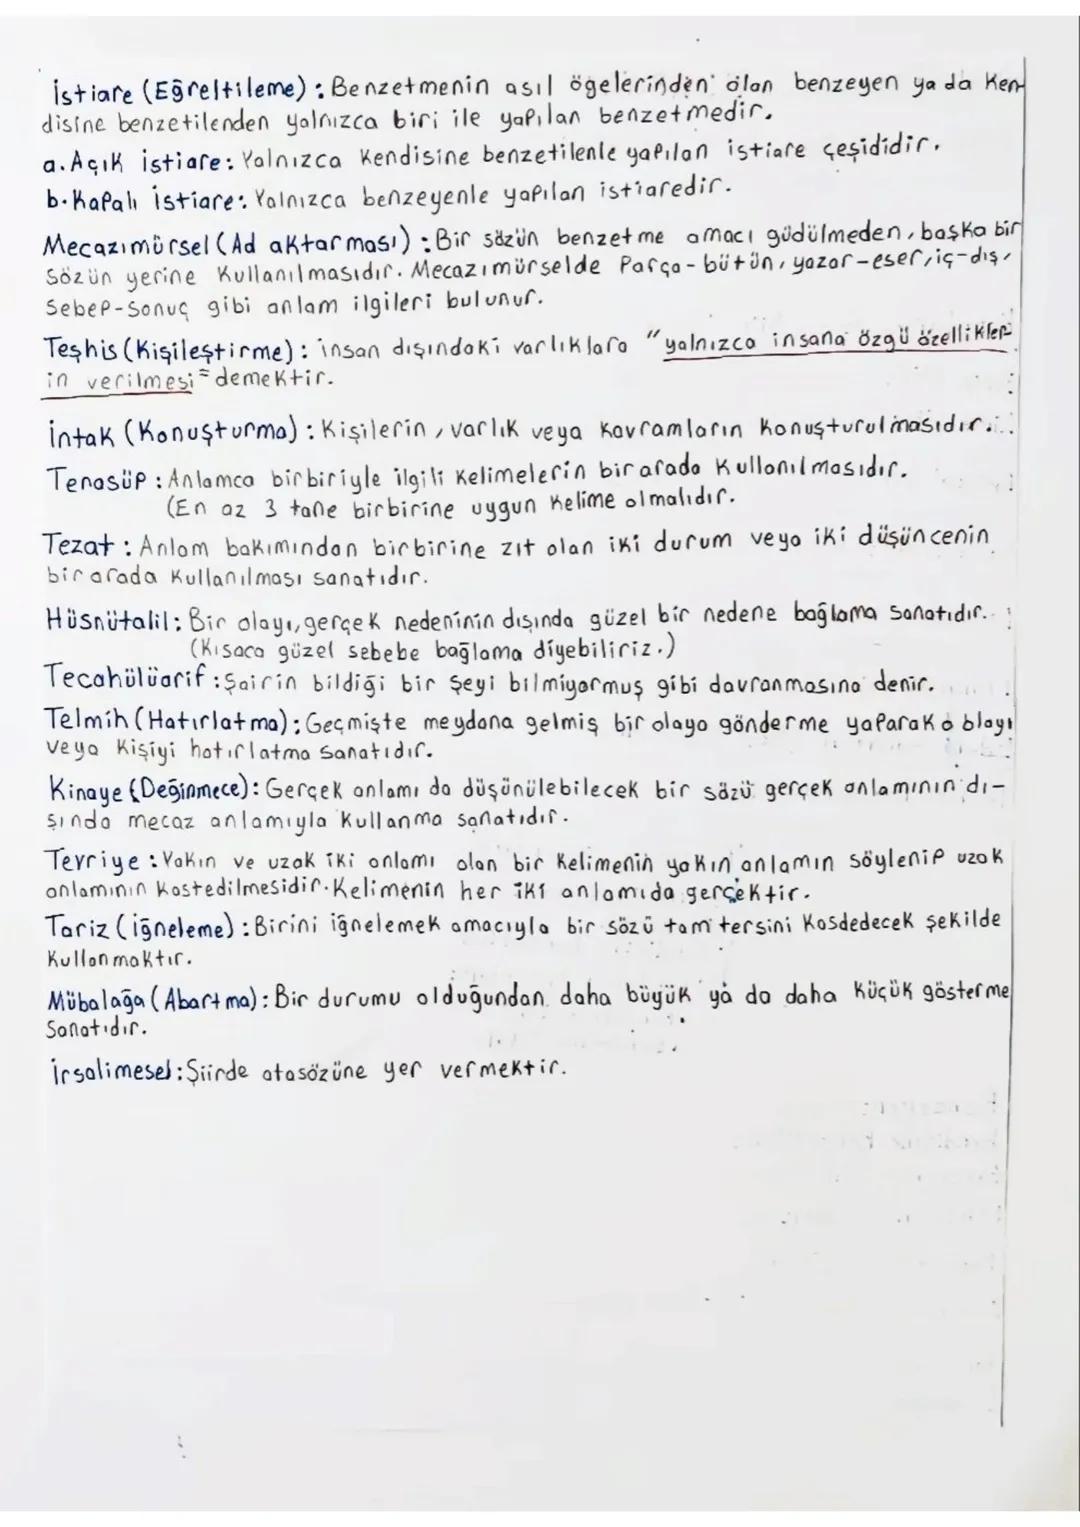 İstiare (Eğreltileme) : Benzetmenin asıl ögelerinden olan benzeyen ya da Ken
disine benzetilenden yalnızca biri ile yapılan benzetmedir.
a. Açık istiare: Yalnızca kendisine benzetilenle yapılan istiare çeşididir.
b. Kapalı istiare: Yalnızca benzeyenle yapılan istiaredir.
Mecazımürsel (Ad aktarması) : Bir sözün benzetme amacı güdülmeden, başka bir
sözün yerine kullanılmasıdır. Mecazımürselde Parça-bütün, yazar-eser, iç-dış,
Sebep-Sonuç gibi anlam ilgileri bulunur.
Teşhis (Kişileştirme) : insan dışındaki varlıklara "yalnızca insana özgü özellikler
in verilmesi" demektir.
İntak (Konuşturma) : Kişilerin, varlık veya kavramların konuşturulmasıdır.
Tenasüp : Anlamca birbiriyle ilgili kelimelerin bir arada kullanılmasıdır.
(En az 3 tane birbirine uygun kelime olmalıdır.
Tezat : Anlam bakımından birbirine zıt olan iki durum veya iki düşüncenin
bir arada kullanılması sanatıdır.
Hüsnütalil : Bir olayı, gerçek nedeninin dışında güzel bir nedene bağlama sanatıdır.
(Kısaca güzel sebebe bağlama diyebiliriz.)
Tecahülüarif : Şairin bildiği bir şeyi bilmiyormuş gibi davranmasına denir.
Telmih (Hatırlatma) : Geçmişte meydana gelmiş bir olaya gönderme yaparak o olayı
veya kişiyi hatırlatma sanatıdır.
Kinaye (Değinmece) : Gerçek anlamı da düşünülebilecek bir sözü gerçek anlamının dı-
şında mecaz anlamıyla kullanma sanatıdır.
Tevriye : Yakın ve uzak iki anlamı olan bir kelimenin yakın anlamın söylenip uzak
anlamının kastedilmesidir. Kelimenin her iki anlamıda gerçektir.
Tariz (iğneleme) : Birini iğnelemek amacıyla bir sözü tam tersini kasdedecek şekilde
kullanmaktır.
Mübalağa (Abartma) : Bir durumu olduğundan daha büyük ya da daha küçük gösterme
Sanatıdır.
İrsalimesel : Şiirde atasözüne yer vermektir.